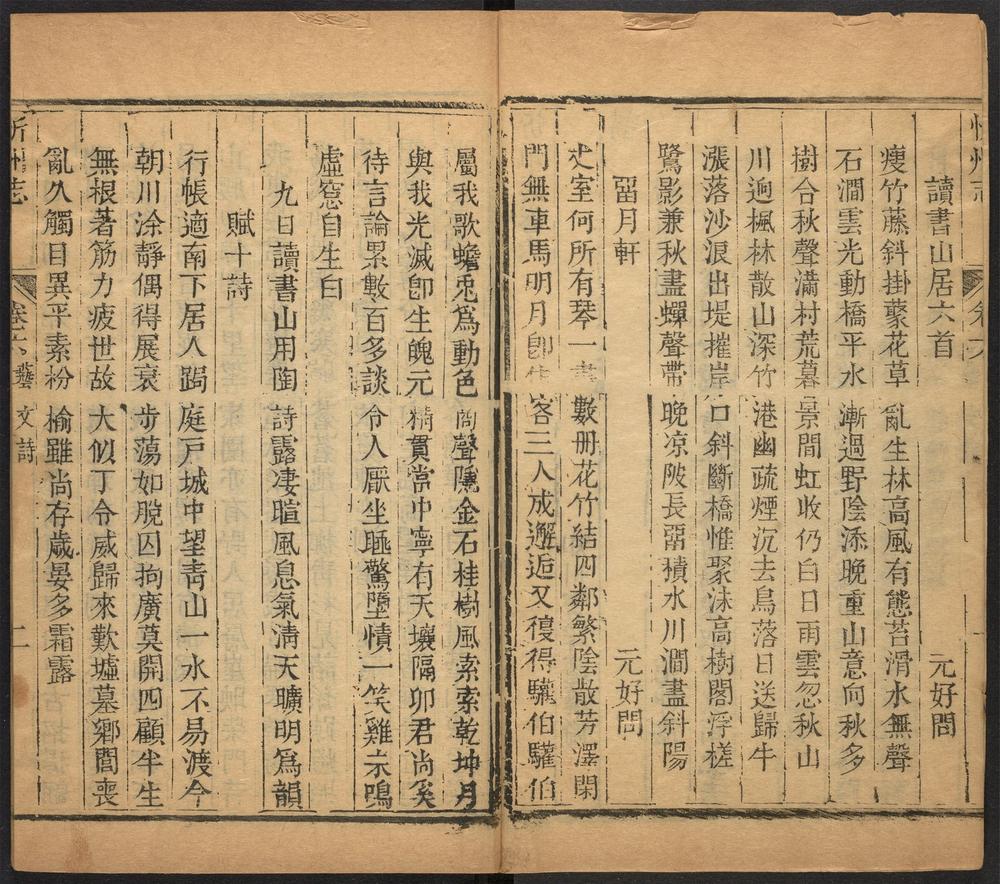 忻州志
卷六
讀書山居六首
元好問
瘦竹藤斜掛藂花草亂生林高風有態苔滑水無聲
石澗雲光動橋平水漸過野陰添晚重山意向秋多
樹合秋聲滿村荒暮景間虹收仍白日雨雲忽秋山
川逈楓林散山深竹港幽疏煙沉去鳥落日送歸牛
漲落沙浪出堤摧岸口斜斷橋惟聚沫高樹閣浮槎
鷺影兼秋盡蟬聲帶晚凉陂長留積水川澗盡斜陽
畱月軒
元好問
丈室何所有琴一書數册花竹結四鄰繁陰散芳澤閑
門無車馬明月卽生客三人成邂逅又復得驩伯驩伯
屬我歌蟾兎爲動色商聲隱金石桂樹風索索乾坤月
與我光滅卽生魄元精貫當中寧有天壤隔卯君尚奚
待言論累數百多談令人厭坐睡驚墮幘一笑雞未鳴
虛窓自生白
九日讀書山用陶詩露凄暄風息氣清天曠明爲韻
賦十詩
行帳適南下居人跼庭戶城中望靑山一水不易渡今
朝川涂靜偶得展衰步蕩如脫囚拘廣莫開四顧半生
無根著筋力疲世故大似丁令威歸來歎墟墓鄉閭喪
亂久觸目異平素枌榆雖尚存歲晏多霜露
忻州志
卷六
藝文詩
一